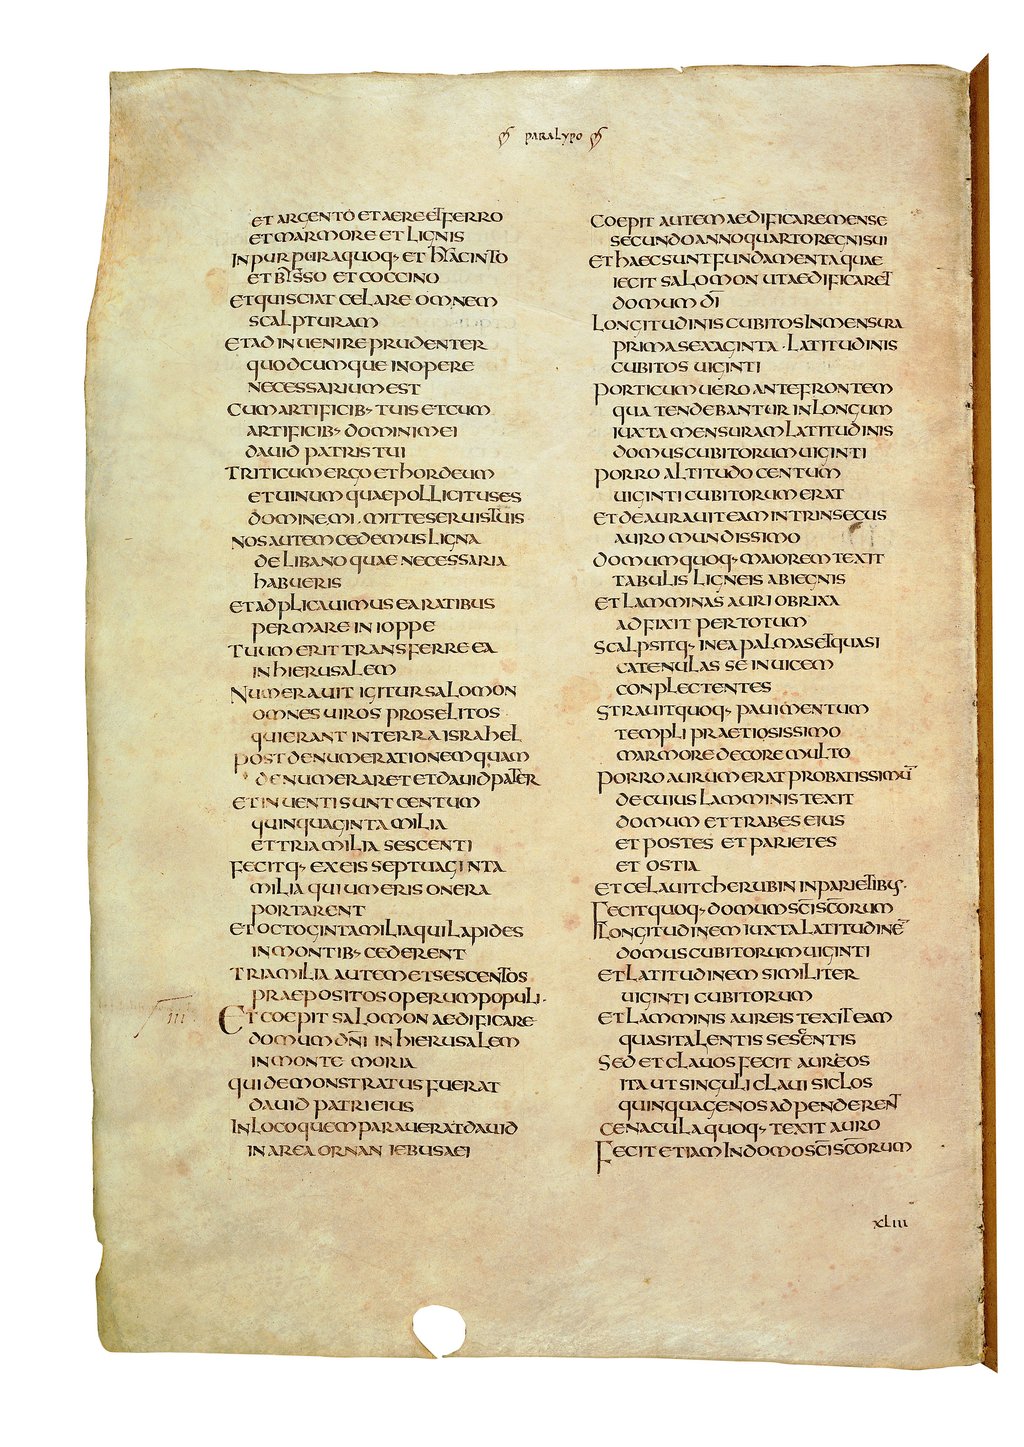 PARALYPO
ET ARGENTO ET AERE ET FERRO
ET MARMORE ET LIGNIS
IN PURPURA QUOQ· ET HYACINTO
ET BYSSO ET COCCINO
ET QUI SCIAT CELARE OMNEM
SCALPTURAM
ET ADINUENIRE PRUDENTER
QUODCUMQUE IN OPERE
NECESSARIUM EST
CUM ARTIFICIB· TUIS ET CUM
ARTIFICIB· DOMINI MEI
DAUID PATRIS TUI
TRITICUM ERGO ET HORDEUM
ET UINUM QUAE POLLICITUS ES
DOMINE MI · MITTE SERUIS TUIS
NOS AUTEM CEDEMUS LIGNA
DE LIBANO QUAE NECESSARIA
HABUERIS
ET ADPLICAUIMUS EA RATIBUS
PER MARE IN IOPPE
TUUM ERIT TRANSFERRE EA
IN HIERUSALEM
NUMERAUIT IGITUR SALOMON
OMNES UIROS PROSELITOS
QUI ERANT IN TERRA ISRAHEL
POST DENUMERATIONEM QUAM
DENUMERARET ET DAUID PATER
ET INUENTI SUNT CENTUM
QUINQUAGINTA MILIA
ET TRIA MILIA SESCENTI
FECITQ· EX EIS SEPTUAGINTA
MILIA QUI UMERIS ONERA
PORTARENT
ET OCTOGINTA MILIA QUI LAPIDES
IN MONTIB· CEDERENT
TRIA MILIA AUTEM ET SESCENTOS
PRAEPOSITOS OPERUM POPULI ·
III ET COEPIT SALOMON AEDIFICARE
DOMUM DN̄I IN HIERUSALEM
IN MONTE MORIA
QUI DEMONSTRATUS FUERAT
DAUID PATRI EIUS
IN LOCO QUEM PARAUERAT DAUID
IN AREA ORNAN IEBUSAEI
COEPIT AUTEM AEDIFICARE MENSE
SECUNDO ANNO QUARTO REGNI SUI
ET HAEC SUNT FUNDAMENTA QUAE
IECIT SALOMON UT AEDIFICARET
DOMUM DĪ
LONGITUDINIS CUBITOS IN MENSURA
PRIMA SEXAGINTA · LATITUDINIS
CUBITOS UIGINTI
PORTICUM UERO ANTE FRONTEM
QUA TENDEBANTUR IN LONGUM
IUXTA MENSURAM LATITUDINIS
DOMUS CUBITORUM UIGINTI
PORRO ALTITUDO CENTUM
UIGINTI CUBITORUM ERAT
ET DEAURAUIT EAM INTRINSECUS
AURO MUNDISSIMO
DOMUM QUOQ· MAIOREM TEXIT
TABULIS LIGNEIS ABIEGNIS
ET LAMMINAS AURI OBRIXA
ADFIXIT PER TOTUM
SCALPSITQ· IN EA PALMAS ET QUASI
CATENULAS SE INUICEM
CONPLECTENTES
STRAUIT QUOQ· PAUIMENTUM
TEMPLI PRAETIOSISSIMO
MARMORE DECORE MULTO
PORRO AURUM ERAT PROBATISSIMŪ
DE CUIUS LAMMINIS TEXIT
DOMUM ET TRABES EIUS
ET POSTES ET PARIETES
ET OSTIA
ET CELAUIT CHERUBIN IN PARIETIBUS ·
FECIT QUOQ· DOMUM SC̄I SC̄ORUM
LONGITUDINEM IUXTA LATITUDINĒ
DOMUS CUBITORUM UIGINTI
ET LATITUDINEM SIMILITER
UIGINTI CUBITORUM
ET LAMMINIS AUREIS TEXIT EAM
QUASI TALENTIS SESCENTIS
SED ET CLAUOS FECIT AUREOS
ITA UT SINGULI CLAUI SICLOS
QUINQUAGENOS ADPENDERENT
CENACULA QUOQ· TEXIT AURO
FECIT ETIAM IN DOMO SC̄I SC̄ORUM
XLIII